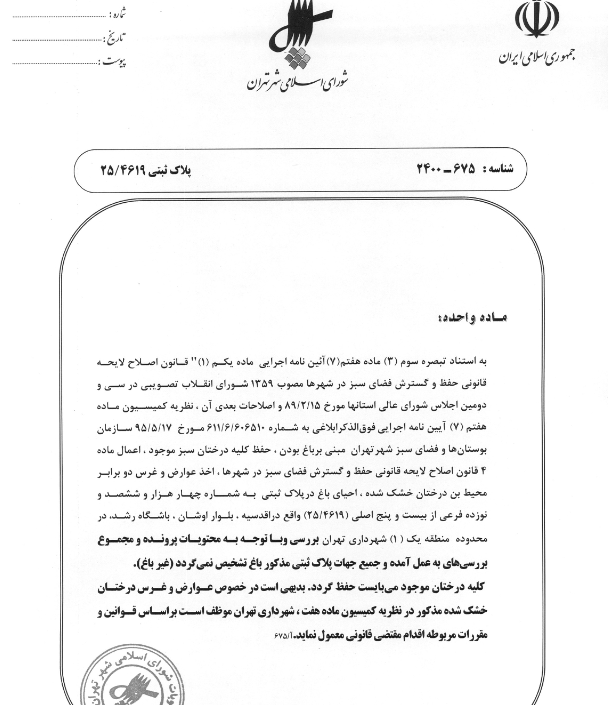 جمهوری اسلامی ایران
شورای اسلامی شهر تهران
شماره :
تاریخ :
پیوست :
شناسه : ۶۷۵ ــ ۲۴۰۰
پلاک ثبتی ۲۵/۴۶۱۹
ماده واحده:
به استناد تبصره سوم (۳) ماده هفتم(۷)آئین نامه اجرایی ماده یکم (۱)" قانون اصلاح لایحه
قانونی حفظ و گسترش فضای سبز در شهرها مصوب ۱۳۵۹ شورای انقلاب تصویبی در سی و
دومین اجلاس شورای عالی استانها مورخ ۸۹/۲/۱۵ و اصلاحات بعدی آن ، نظریه کمیسیون ماده
هفتم (۷) آیین نامه اجرایی فوق‌الذکرابلاغی به شماره ۶۱۱/۶/۶۰۶۵۱۰ مورخ ۹۵/۵/۱۷ سازمان
بوستان‌ها و فضای سبز شهرتهران مبنی برباغ بودن ، حفظ کلیه درختان سبز موجود ، اعمال ماده
۴ قانون اصلاح لایحه قانونی حفظ و گسترش فضای سبز در شهرها ، اخذ عوارض و غرس دو برابر
محیط بن درختان خشک شده ، احیای باغ درپلاک ثبتی به شماره چهار هزار و ششصد و
نوزده فرعی از بیست و پنج اصلی (۲۵/۴۶۱۹) واقع دراقدسیه ، بلوار اوشان ، باشگاه رشد، در
محدوده منطقه یک (۱) شهرداری تهران بررسی وبا توجه به محتویات پرونده و مجموع
بررسی‌های به عمل آمده و جمیع جهات پلاک ثبتی مذکور باغ تشخیص نمی‌گردد (غیر باغ).
کلیه درختان موجود می‌بایست حفظ گردد. بدیهی است در خصوص عوارض و غرس درختان
خشک شده مذکور در نظریه کمیسیون ماده هفت ، شهرداری تهران موظف است براساس قوانین و
مقررات مربوطه اقدام مقتضی قانونی معمول نماید.
شورای اسلامی شهر تهران